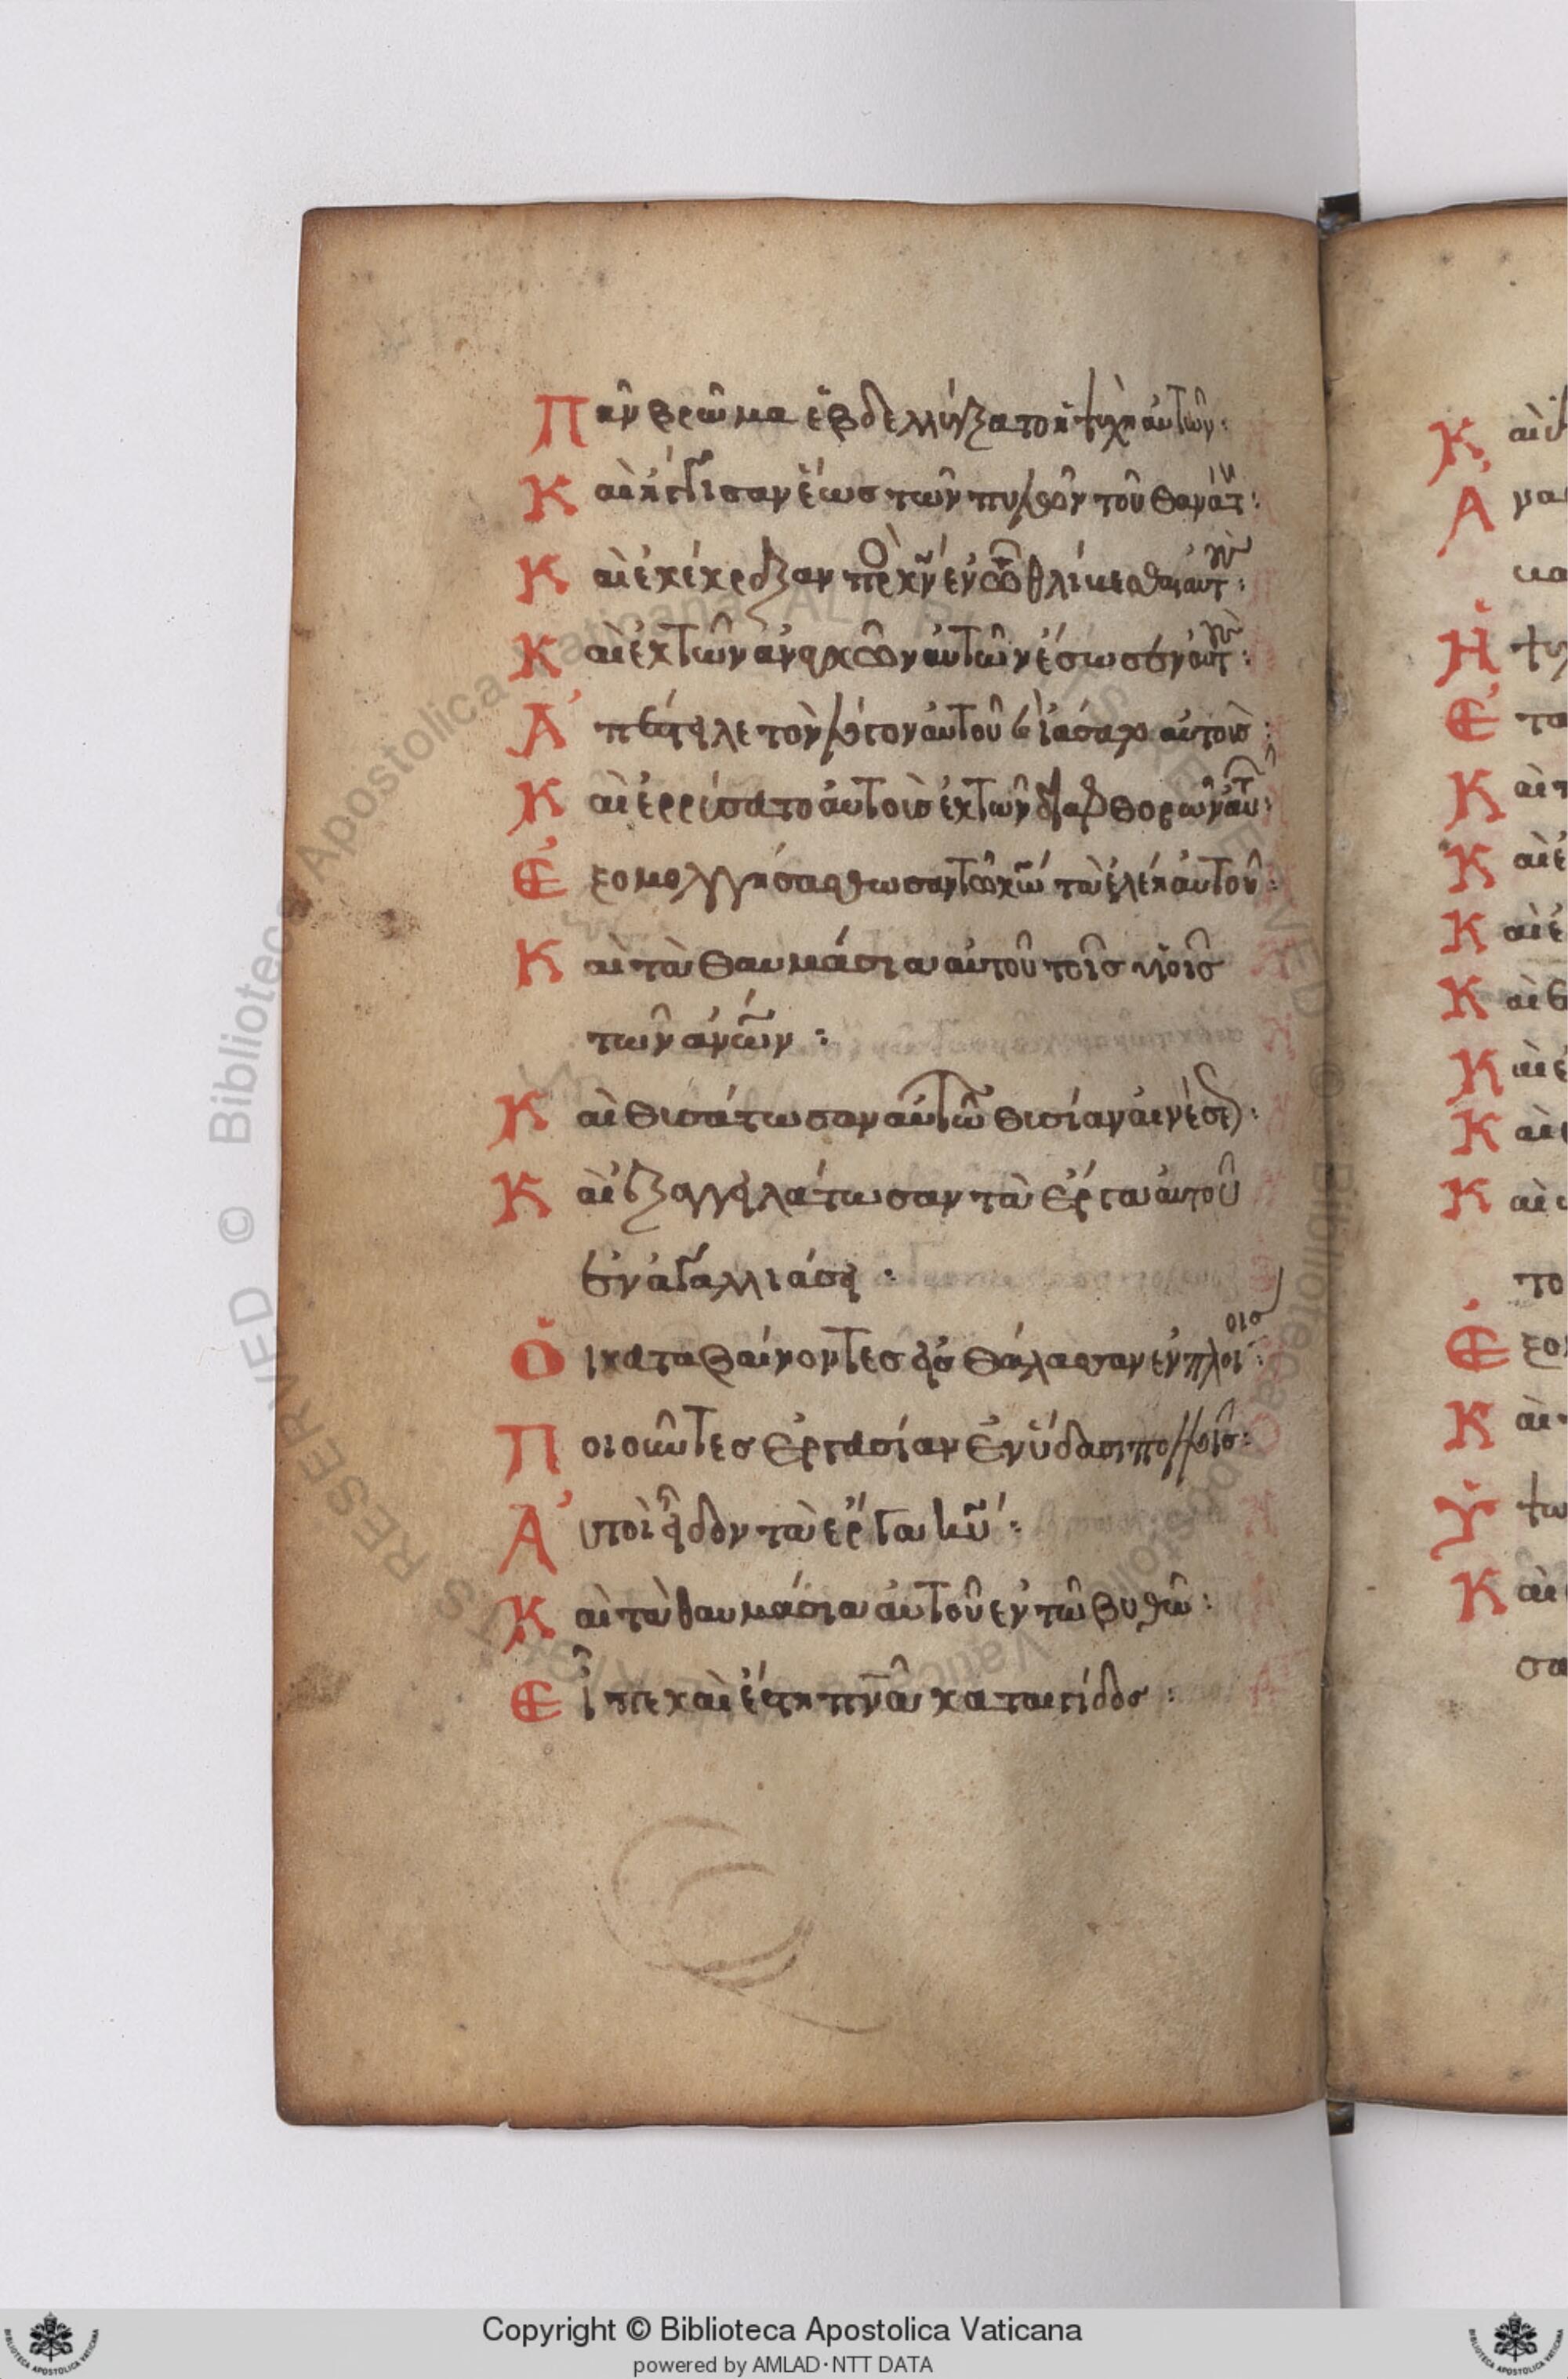 Πᾶν βρῶμα ἐβδελλύξατο ἡ ψυχὴ αὐτῶν:
Καὶ ἤγγισαν ἕως τῶν πυλῶν τοῦ θανάτ:
Καὶ ἐκέκραξαν πρὸς κ̄ν ἐν τῶ θλίβεσθαι αὐτούς:
Καὶ ἐκ τῶν ἀναγκῶν αὐτῶν ἔσωσεν αὐτούς:
Ἀπέστειλε τὸν λόγον αὐτοῦ καὶ ἰάσατο αὐτοὺς:
Καὶ ἐρρύσατο αὐτοὺς ἐκ τῶν διαφθορῶν αὐτ:
Ἐξομολογησάσθωσαν τῶ κ̄ω τὰ ἐλέη αὐτοῦ:
Καὶ τὰ θαυμάσια αὐτοῦ τοῖς υἱοῖς
τῶν ἀν̄ων:
Καὶ θυσάτωσαν αὐτῶ θυσίαν αἰνέσεως:
Καὶ ἐξαγγειλάτωσαν τὰ ἔργα αὐτοῦ
ἐν ἀγαλλιάσει:
Οἱ καταβαίνοντες εἰς θάλασσαν ἐν πλοίοις:
Ποιοῦντες ἐργασίαν ἐν ὕδασι πολλοῖς:
Αὐτοὶ εἶδον τὰ ἔργα κ̄υ:
Καὶ τὰ θαυμάσια αὐτοῦ ἐν τῶ βυθῶ:
Εἶπε καὶ ἔστη πν̄α καταιγίδος:
Copyright © Biblioteca Apostolica Vaticana
powered by AMLAD·NTT DATA